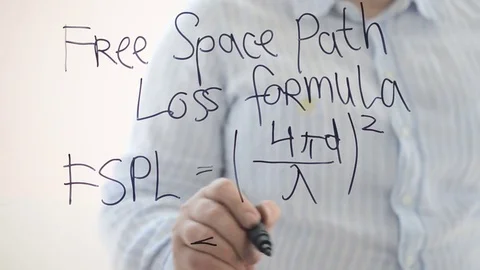 Free Space Path
Loss formula
FSPL = (4πd/λ)²
<